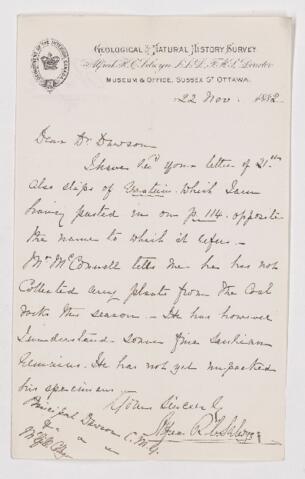 DEPARTMENT OF THE INTERIOR CANADA
GEOLOGICAL & NATURAL HISTORY SURVEY
Alfred R. C. Selwyn L.L.D. F.R.S. Director
MUSEUM & OFFICE, SUSSEX ST OTTAWA.
22 Nov. 1882
Dear Dr Dawson
I have recd your letter of 21st
also slips of which I am
having pasted in on p. 114. opposite
the name to which it refers. –
Mr McConnell tells me he has not
collected any plants from the Coal
rocks this season – He has however
I understand some fine Saurian
remains. He has not yet unpacked
his specimens
Yours Sincerely
Alfred R. C. Selwyn
Principal Dawson C.M.G.
McGill